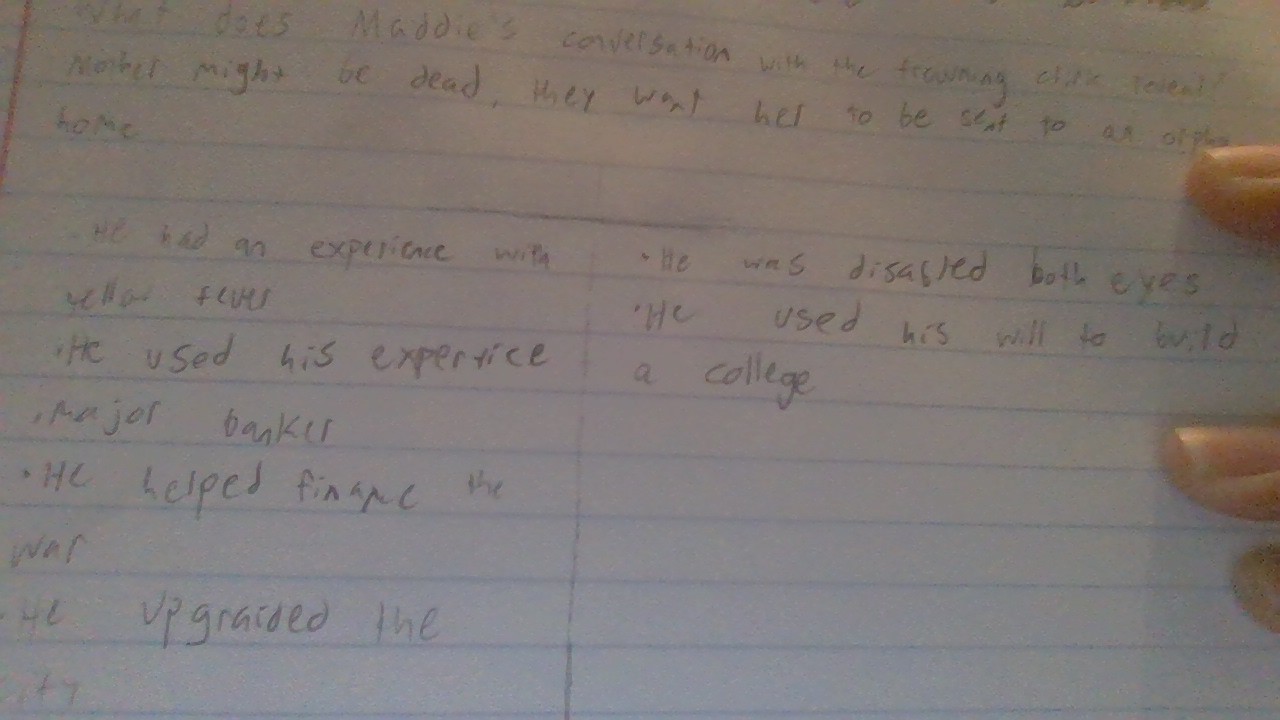 What does Maddie's conversation with the frowning clerk reveal?
Mother might be dead, they want her to be sent to an orphan
home
He had an experience with
yellow fever
• He used his expertice
• Major banker
• He helped finance the
war
• He upgraided the
city
• He was disabled both eyes
• He used his will to build
a college